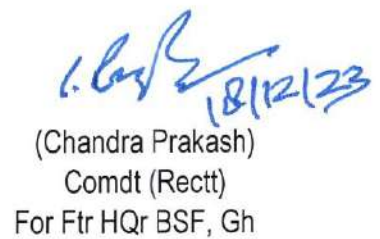 18/12/23
(Chandra Prakash)
Comdt (Rectt)
For Ftr HQr BSF, Gh